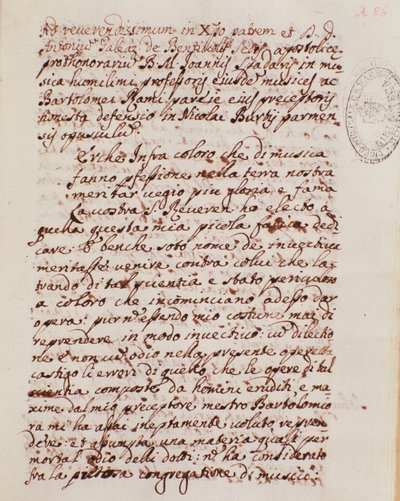 A. 86.
Ad reverendissimum in Xpo patrem et D. D.
Antonium Galeaz de Bentivolis sedis apostolice
prothonorarium B. M. Joannis Spadarii in mu
sica humilimi professoris ejusdem musices ac
Bartolomei Rami pareie ejus preceptoris
honesta defensio in Nicolai Burtii parmen
sis opusculu
Perche Infra coloro che di musica
fanno pfessione nella terra nostra
meritar vegio piu gloria e fama
La vostra S. Reveren ho electo a
quella questa mia picola dedi
care. E benche soto nome de invectiva
meritasse venire contra colui che la
trando di tal scientia e stato pericoloso
a coloro che incominciano adesso dar
opera: pur nessendo mio costume mai di
reprendere in modo invectivo: cu dilectio
ne e non cu odio nella presente opereta
castigo li errori di quello che le opere di tal
scientia composte da homini eruditi e ma
xime dal mio preceptore mestro Bartolomio
rami ha assai ineptamente voluto repren
dere: et apuncta una materia quasi per
mortal odio delli dotti: no ha considerato
fra la pretiosa congregatione di musici